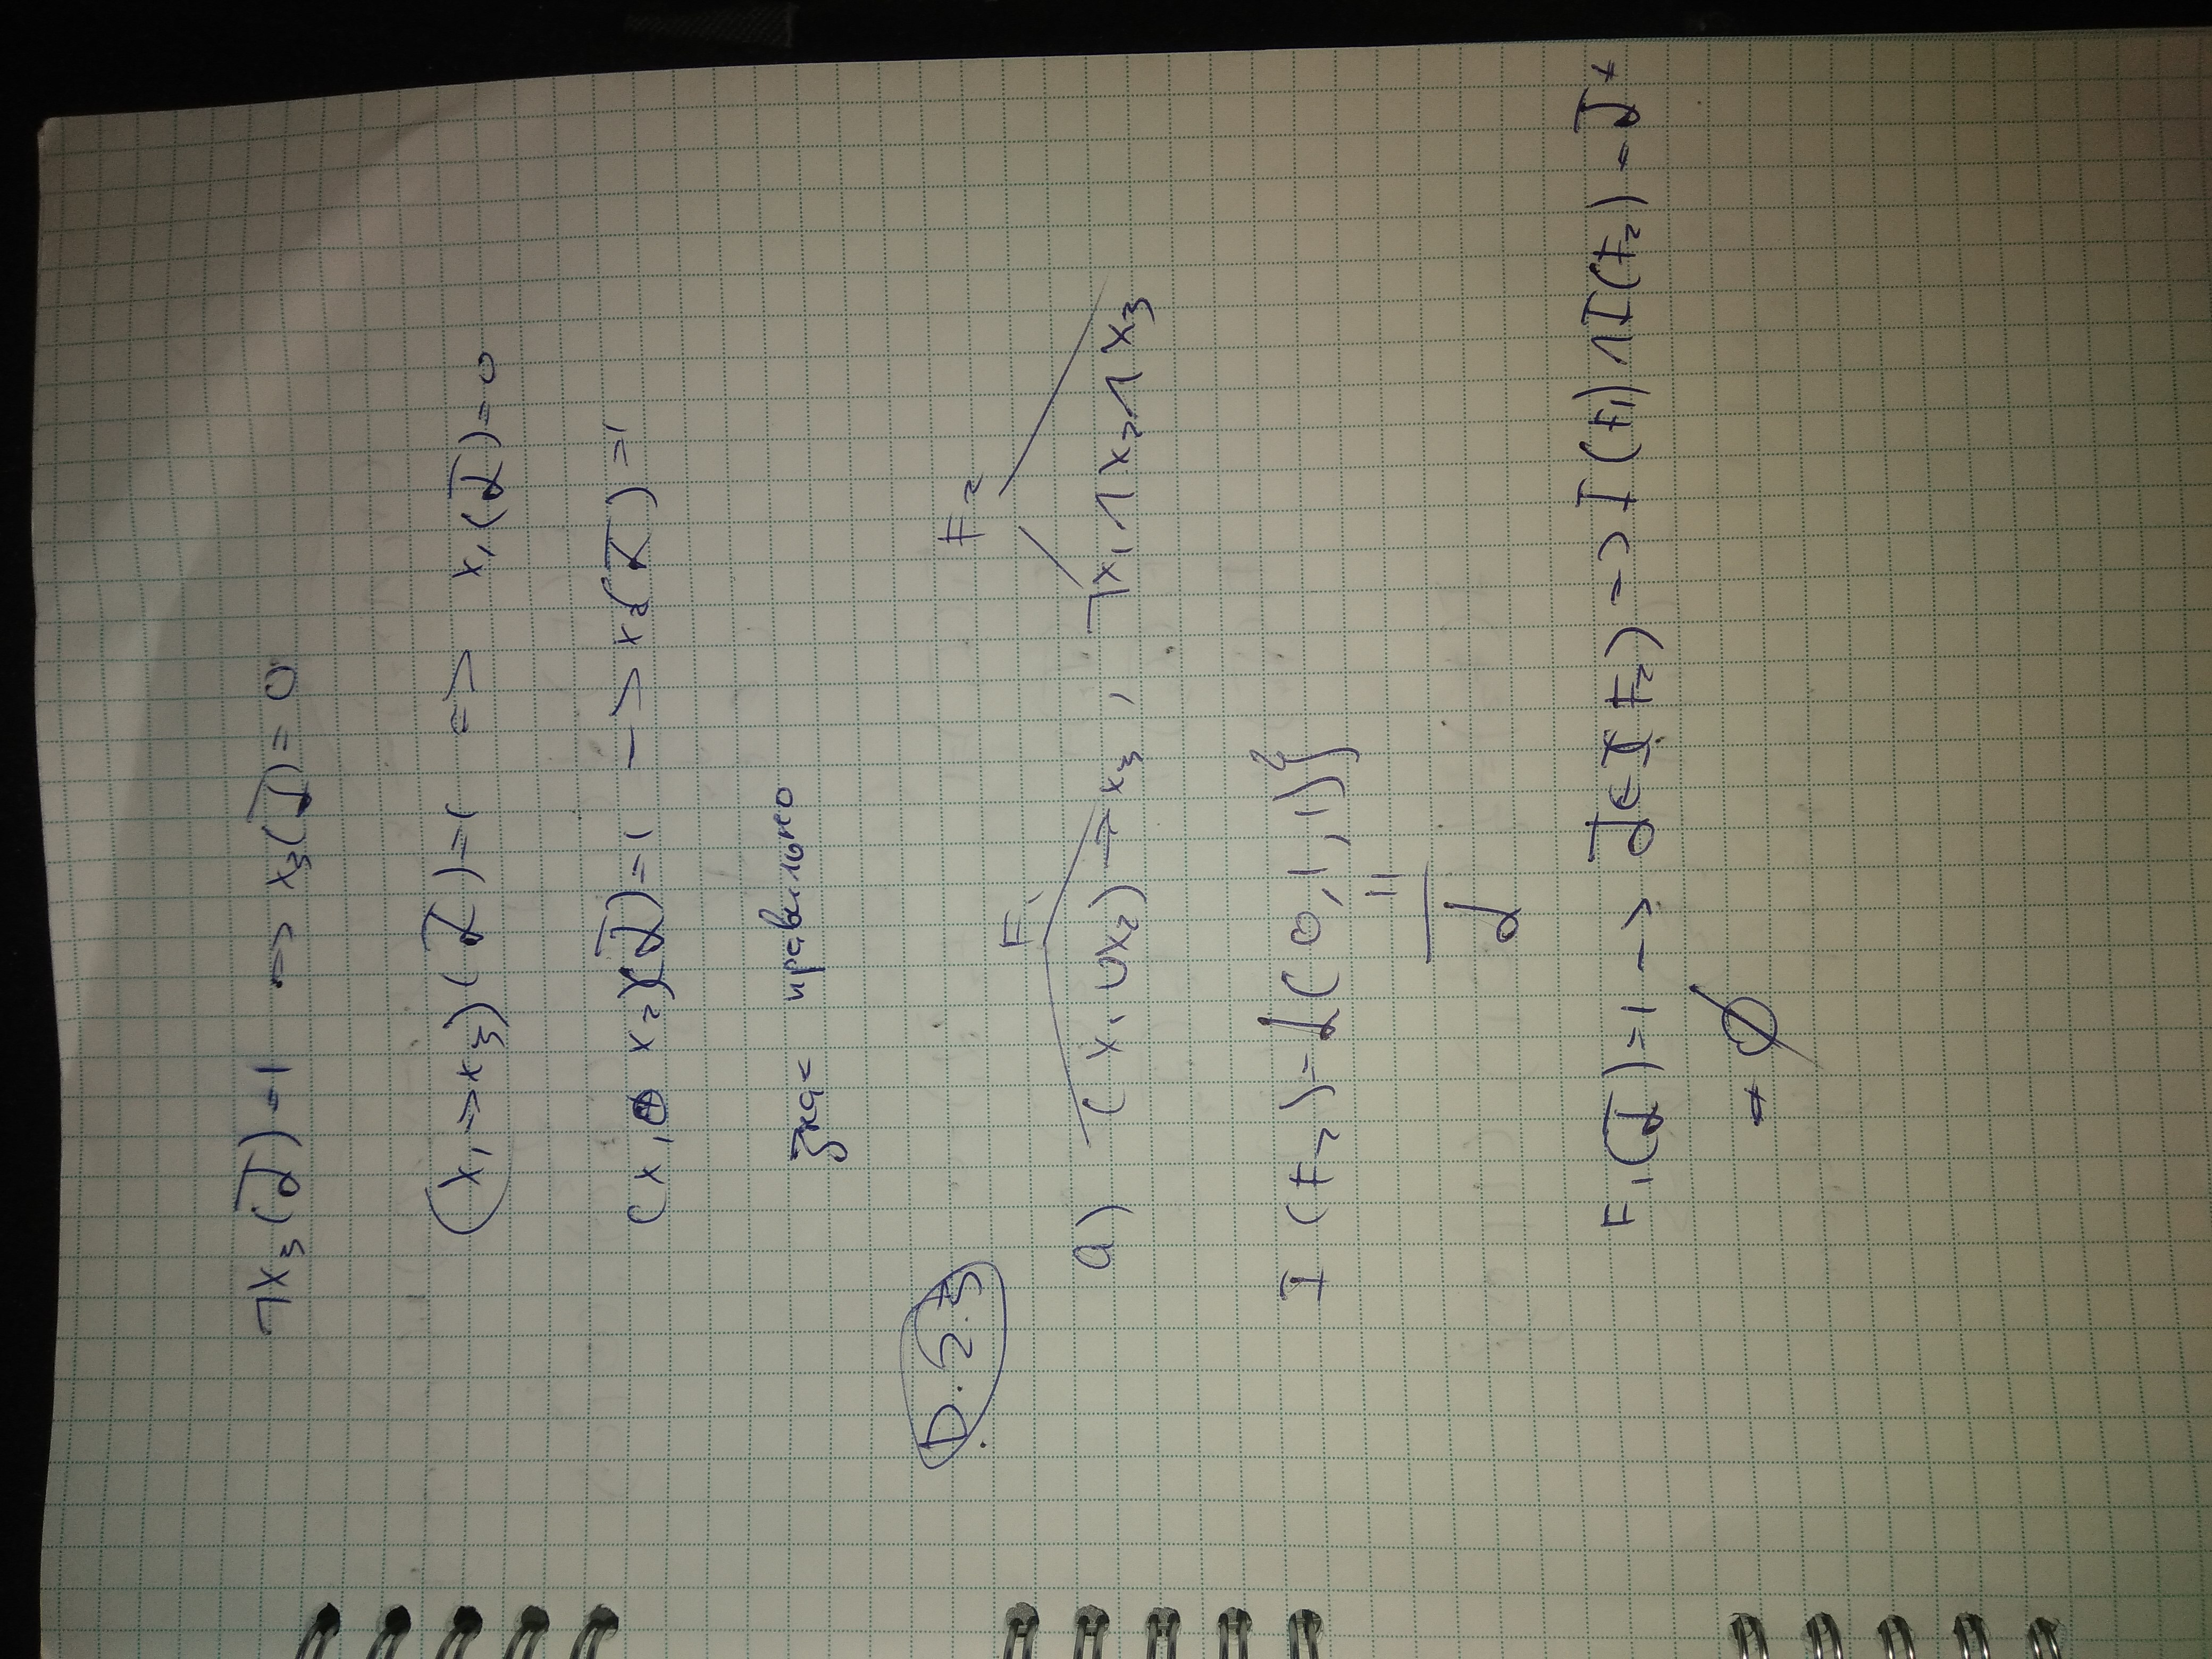 ¬x₃(α̅)=1 => x₃(α̅)=0
(x₁->x₃)(α̅)=1 => x₁(α̅)=0
(x₁⊕x₂)(α̅)=1 -> x₂(α̅)=1
правильно
D.2.3
F₁ F₂
a) (x₁∪x₂)->x₃, ¬x₁∧x₂∧x₃
I(F₂)={(0,1,1)}
=
α̅
F₁(α̅)=1 -> α̅∈I F₂) => I(F₁)∧I(F₂)=α̅≠
≠∅